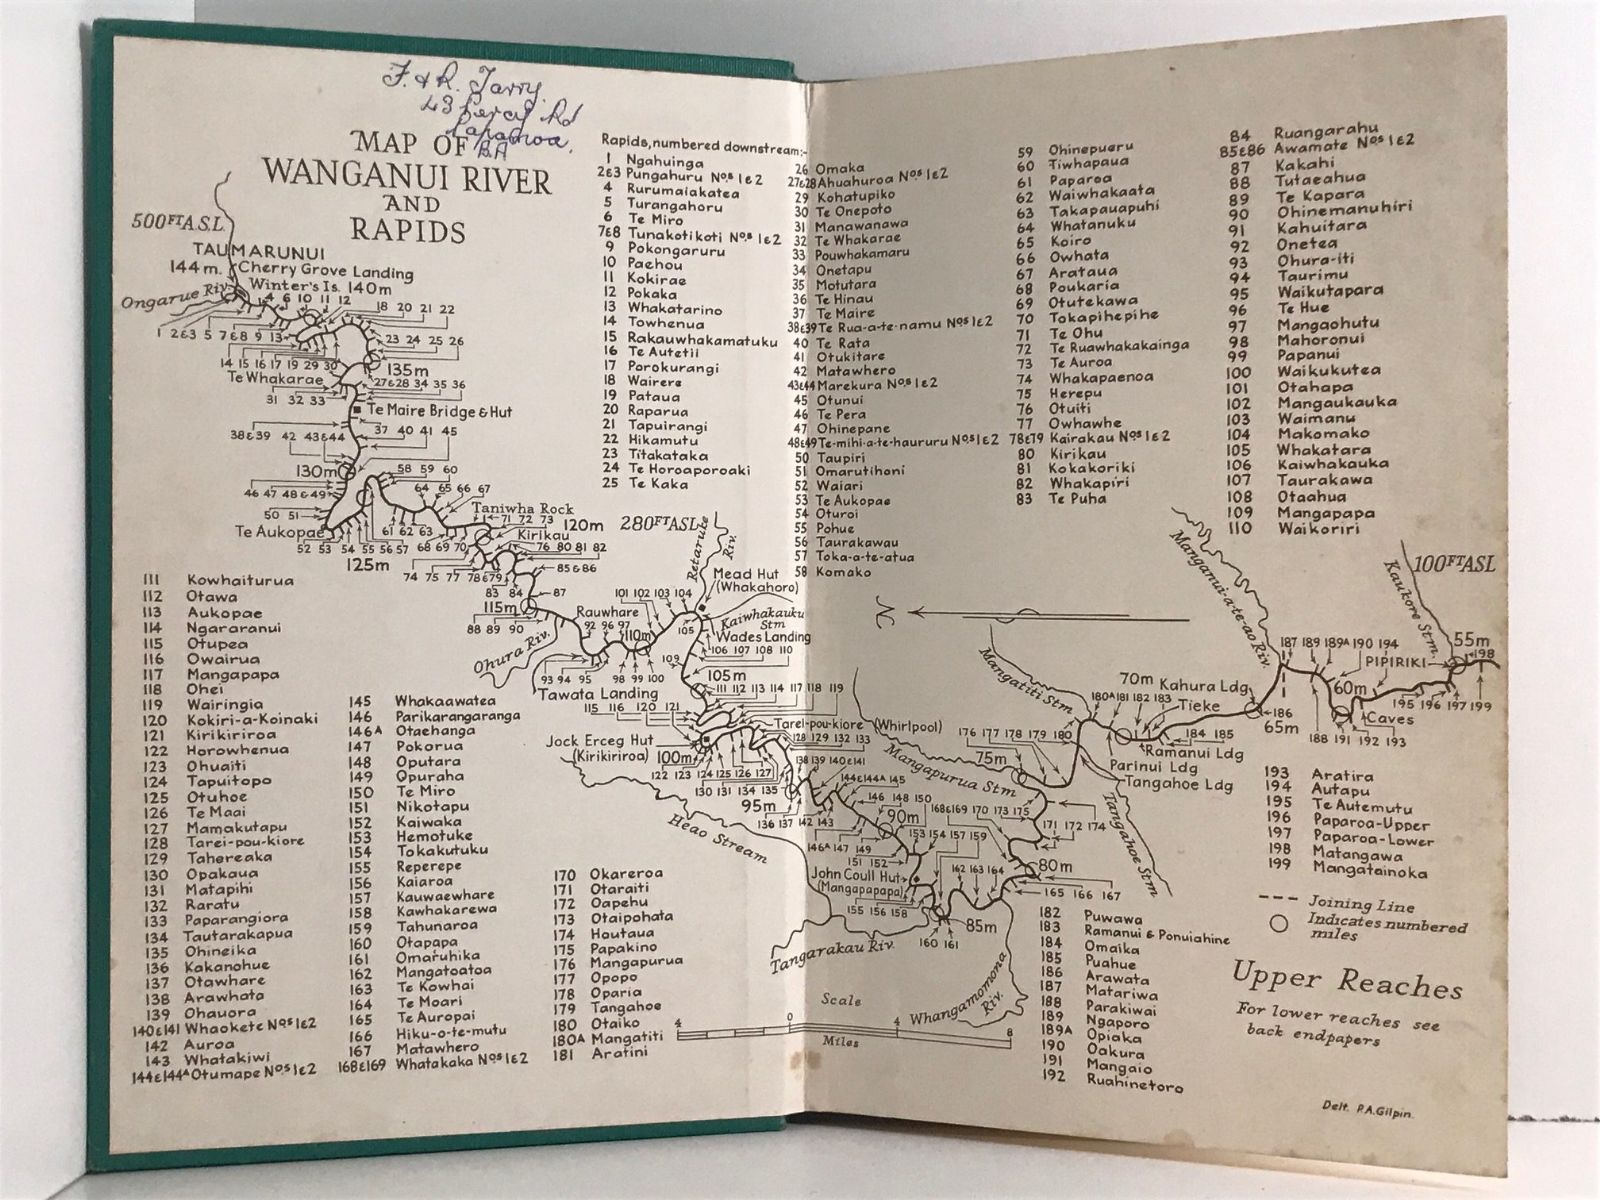 F. & R. Tarry.
43 Percy Rd
Papamoa.
MAP OF
WANGANUI RIVER
AND
RAPIDS
Rapids, numbered downstream:-
1 Ngahuinga
2&3 Pungahuru Nos 1&2
4 Rurumaiakatea
5 Turangahoru
6 Te Miro
7&8 Tunakotikoti Nos 1&2
9 Pokongaruru
10 Paehou
11 Kokirae
12 Pokaka
13 Whakatarino
14 Towhenua
15 Rakauwhakamatuku
16 Te Autetil
17 Porokurangi
18 Wairere
19 Pataua
20 Raparua
21 Tapuirangi
22 Hikamutu
23 Titakataka
24 Te Horoaporoaki
25 Te Kaka
26 Omaka
27&28 Ahuahuroa Nos 1&2
29 Kohatupiko
30 Te Onepoto
31 Manawanawa
32 Te Whakarae
33 Pouwhakamaru
34 Onetapu
35 Motutara
36 Te Hinau
37 Te Maire
38&39 Te Rua-a-te-namu Nos 1&2
40 Te Rata
41 Otukitare
42 Matawhero
43&44 Marekura Nos 1&2
45 Otunui
46 Te Pera
47 Ohinepane
48&49 Te-mihi-a-te-haururu Nos 1&2
50 Taupiri
51 Omarutihoni
52 Waiari
53 Te Aukopae
54 Oturoi
55 Pohue
56 Taurakawau
57 Toka-a-te-atua
58 Komako
59 Ohinepueru
60 Tiwhapaua
61 Paparoa
62 Waiwhakaata
63 Takapauapuhi
64 Whatanuku
65 Koiro
66 Owhata
67 Arataua
68 Poukaria
69 Otutekawa
70 Tokapihepihe
71 Te Ohu
72 Te Ruawhakakainga
73 Te Auroa
74 Whakapaenoa
75 Herepu
76 Otuiti
77 Owhawhe
78&79 Kairakau Nos 1&2
80 Kirikau
81 Kokakoriki
82 Whakapiri
83 Te Puha
84 Ruangarahu
85&86 Awamate Nos 1&2
87 Kakahi
88 Tutaeahua
89 Te Kapara
90 Ohinemanuhiri
91 Kahuitara
92 Onetea
93 Ohura-iti
94 Taurimu
95 Waikutapara
96 Te Hue
97 Mangaohutu
98 Mahoronui
99 Papanui
100 Waikukutea
101 Otahapa
102 Mangaukauka
103 Waimanu
104 Makomako
105 Whakatara
106 Kaiwhakauka
107 Taurakawa
108 Otaahua
109 Mangapapa
110 Waikoriri
500FT A.S.L
TAUMARUNUI
144m. Cherry Grove Landing
Winter's Is. 140m
Ongarue Riv.
4 6 10 11 12
18 20 21 22
1 2&3 5 7&8 9 13
23 24 25 26
14 15 16 17 19 29 30
135m
Te Whakarae
27&28 34 35 36
31 32 33
Te Maire Bridge & Hut
37 40 41 45
38&39 42 43&44
130m
58 59 60
46 47 48&49
64 65 66 67
50 51
Te Aukopae
61 62 63
Taniwha Rock
71 72 73 120m
52 53 54 55 56 57
68 69 70
Kirikau
76 80 81 82
125m
74 75 77 78&79
85&86
83 84 87
115m
88 89 90
280FT ASL
Retaruke Riv.
Mead Hut
(Whakahoro)
Rauwhare
92 96 97
110m
101 102 103 104
105
Kaiwhakauku Stm
Wades Landing
106 107 108 110
Ohura Riv.
93 94 95 98 99 100
109
105m
Tawata Landing
111 112 113 114 117 118 119
115 116 120 121
Tarei-pou-kiore (Whirlpool)
128 129 132 133
Jock Erceg Hut
(Kirikiriroa)
100m
122 123 124 125 126 127
130 131 134 135
138 139 140&141
95m
144&144A 145
136 137 142 143
146 148 150
90m
Heao Stream
146A 147 149
153 154 157 159
151 152
John Coull Hut
(Mangapapapa)
155 156 158
160 161
162 163 164
85m
168&169 170 173 175
171 172 174
80m
165 166 167
Tangarakau Riv.
Whangamomona Riv.
Mangapurua Stm
176 177 178 179 180
75m
Mangatiti Stm
70m Kahura Ldg
180A 181 182 183
Tieke
184 185
Ramanui Ldg
Parinui Ldg
Tangahoe Ldg
Tangahoe Stm
186
65m
Manganui-a-te-ao Riv.
187 189 189A 190 194
PIPIRIKI
60m
Caves
188 191 192 193
195 196 197 199
198
55m
Kaukore Stm.
100FT ASL
N
111 Kowhaiturua
112 Otawa
113 Aukopae
114 Ngararanui
115 Otupea
116 Owairua
117 Mangapapa
118 Ohei
119 Wairingia
120 Kokiri-a-Koinaki
121 Kirikiriroa
122 Horowhenua
123 Ohuaiti
124 Tapuitopo
125 Otuhoe
126 Te Maai
127 Mamakutapu
128 Tarei-pou-kiore
129 Tahereaka
130 Opakaua
131 Matapihi
132 Raratu
133 Paparangiora
134 Tautarakapua
135 Ohineika
136 Kakanohue
137 Otawhare
138 Arawhata
139 Ohauora
140&141 Whaokete Nos 1&2
142 Auroa
143 Whatakiwi
144&144A Otumape Nos 1&2
145 Whakaawatea
146 Parikarangaranga
146A Otaehanga
147 Pokorua
148 Oputara
149 Opuraha
150 Te Miro
151 Nikotapu
152 Kaiwaka
153 Hemotuke
154 Tokakutuku
155 Reperepe
156 Kaiaroa
157 Kauwaewhare
158 Kawhakarewa
159 Tahunaroa
160 Otapapa
161 Omaruhika
162 Mangatoatoa
163 Te Kowhai
164 Te Moari
165 Te Auropai
166 Hiku-o-te-mutu
167 Matawhero
168&169 Whatakaka Nos 1&2
170 Okareroa
171 Otaraiti
172 Oapehu
173 Otaipohata
174 Hautaua
175 Papakino
176 Mangapurua
177 Opopo
178 Oparia
179 Tangahoe
180 Otaiko
180A Mangatiti
181 Aratini
182 Puwawa
183 Ramanui & Ponuiahine
184 Omaika
185 Puahue
186 Arawata
187 Matariwa
188 Parakiwai
189 Ngaporo
189A Opiaka
190 Oakura
191 Mangaio
192 Ruahinetoro
193 Aratira
194 Autapu
195 Te Autemutu
196 Paparoa-Upper
197 Paparoa-Lower
198 Matangawa
199 Mangatainoka
Joining Line
Indicates numbered
miles
Upper Reaches
For lower reaches see
back endpapers
Scale
4 0 4 8
Miles
Delt. P.A.Gilpin.